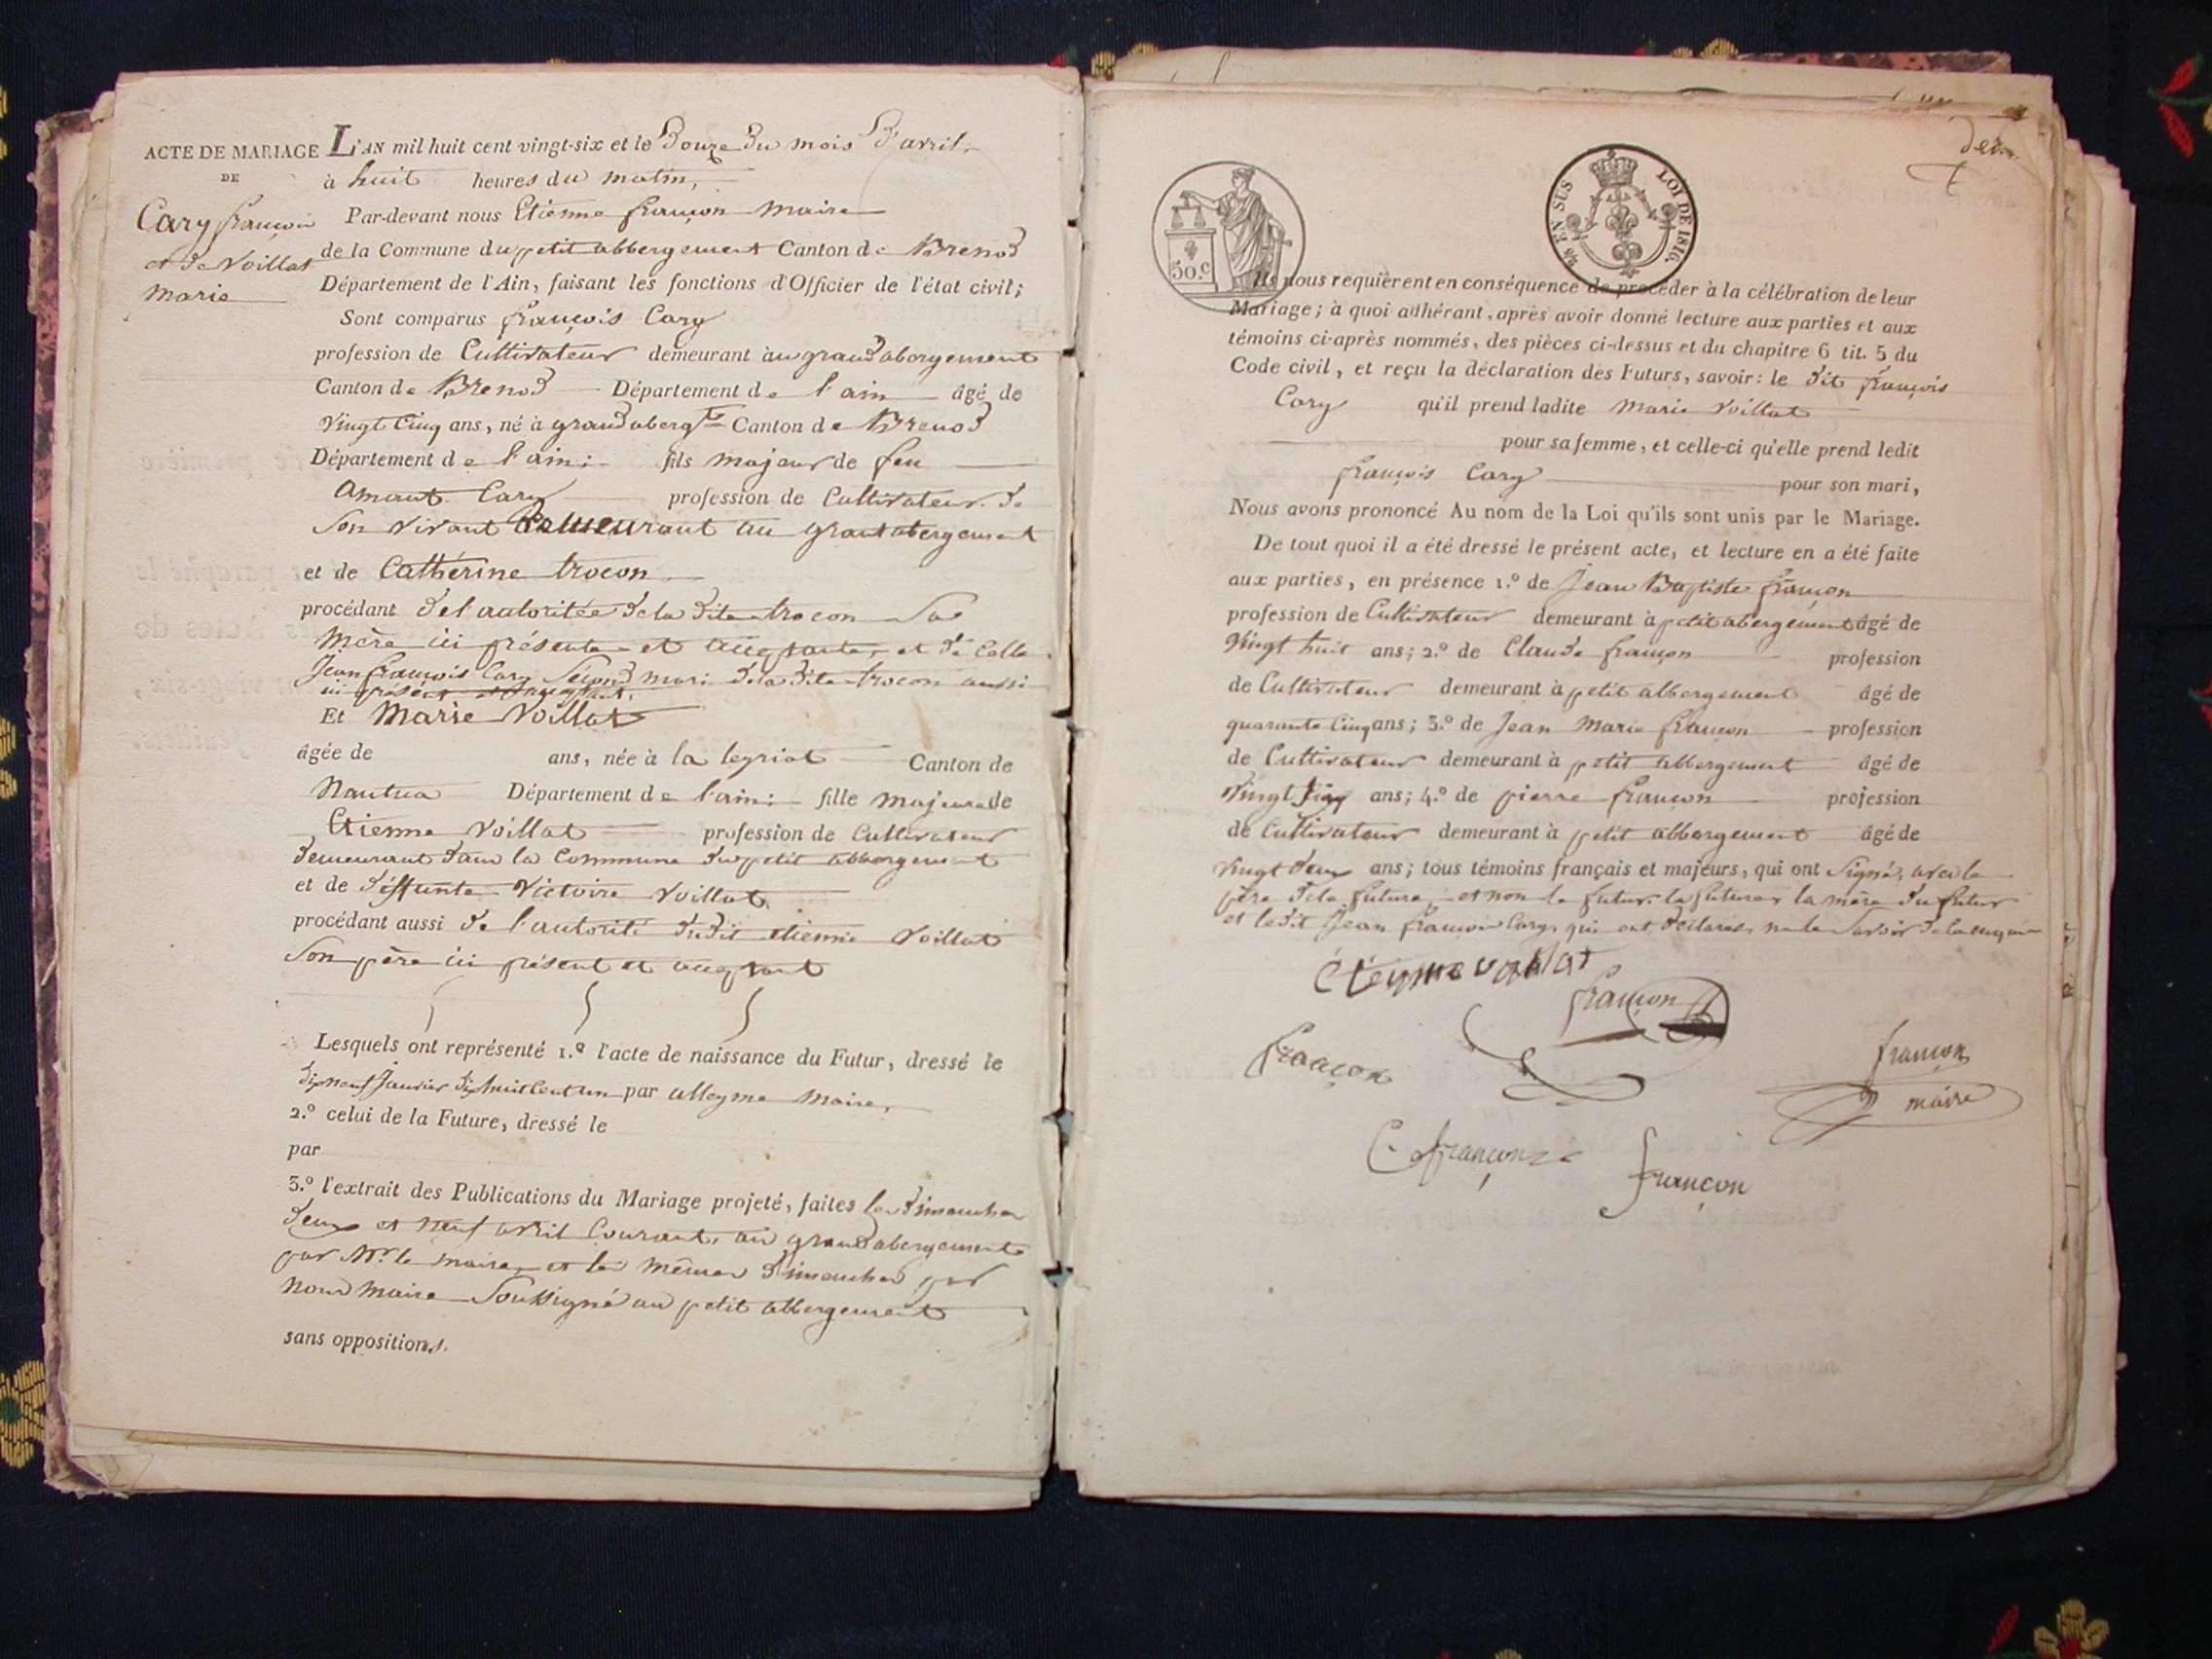 ACTE DE MARIAGE
DE
Cary françois
et de Voillat
marie
L'AN mil huit cent vingt-six et le Douze du mois D'avril,
à huit heures du matin,
Par-devant nous Etienne françon maire
de la Commune du petit abbergement Canton de Brenod
Département de l'Ain, faisant les fonctions d'Officier de l'état civil;
Sont comparus françois Cary
profession de Cultivateur demeurant au grand abergement
Canton de Brenod Département de l'ain âgé de
vingt Cinq ans, né à grand aberg.t Canton de Brenod
Département de l'ain; fils majeur de feu
Amant Cary profession de Cultivateur de
Son vivant demeurant au grand abergement
et de Cathérine trocon
procédant de l'autoritée de la dite trocon Sa
mère ici présente et acceptante, et de Celle
Jean françois Cary Second mari de la dite trocon aussi
ici présent et acceptant.
Et Marie Voillat
âgée de ans, née à la leyriat Canton de
Nantua Département de l'ain; fille majeure de
Etienne Voillat profession de Cultivateur
demeurant dans la Commune du petit abbergement
et de déffunte Victoire Voillat
procédant aussi de l'autorité dudit etienne Voillat
Son père ici présent et acceptant
Lesquels ont représenté 1.º l'acte de naissance du Futur, dressé le
dix neuf Janvier dix huit Cent un par alleyme maire,
2.º celui de la Future, dressé le
par
3.º l'extrait des Publications du Mariage projeté, faites les dimanches
deux et neuf avril Courant, au grand abergement
par Mr. le maire, et les mêmes dimanches par
nous maire Soussigné au petit abbergement
sans oppositions.
50.c
EN SUS
LOI DE 1816.
Ils nous requièrent en conséquence de procéder à la célébration de leur
Mariage; à quoi adhérant, après avoir donné lecture aux parties et aux
témoins ci-après nommés, des pièces ci-dessus et du chapitre 6 tit. 5 du
Code civil, et reçu la déclaration des Futurs, savoir: le dit françois
Cary qu'il prend ladite marie Voillat
pour sa femme, et celle-ci qu'elle prend ledit
françois Cary pour son mari,
Nous avons prononcé Au nom de la Loi qu'ils sont unis par le Mariage.
De tout quoi il a été dressé le présent acte, et lecture en a été faite
aux parties, en présence 1.º de Jean Baptiste françon
profession de Cultivateur demeurant à petit abergement âgé de
vingt huit ans; 2.º de Claude françon profession
de Cultivateur demeurant à petit abbergement âgé de
quarante Cinq ans; 3.º de Jean Marie françon profession
de Cultivateur demeurant à petit abbergement âgé de
vingt Cinq ans; 4.º de pierre françon profession
de Cultivateur demeurant à petit abbergement âgé de
vingt deux ans; tous témoins français et majeurs, qui ont Signé, avec le
père de la future, et non le futur, la future, la mère du futur
et le dit Jean françois Cary, qui ont déclarés ne le Savoir de la enquis
éteynne voallat
françon
françon
françon
maire
C. françon
françon